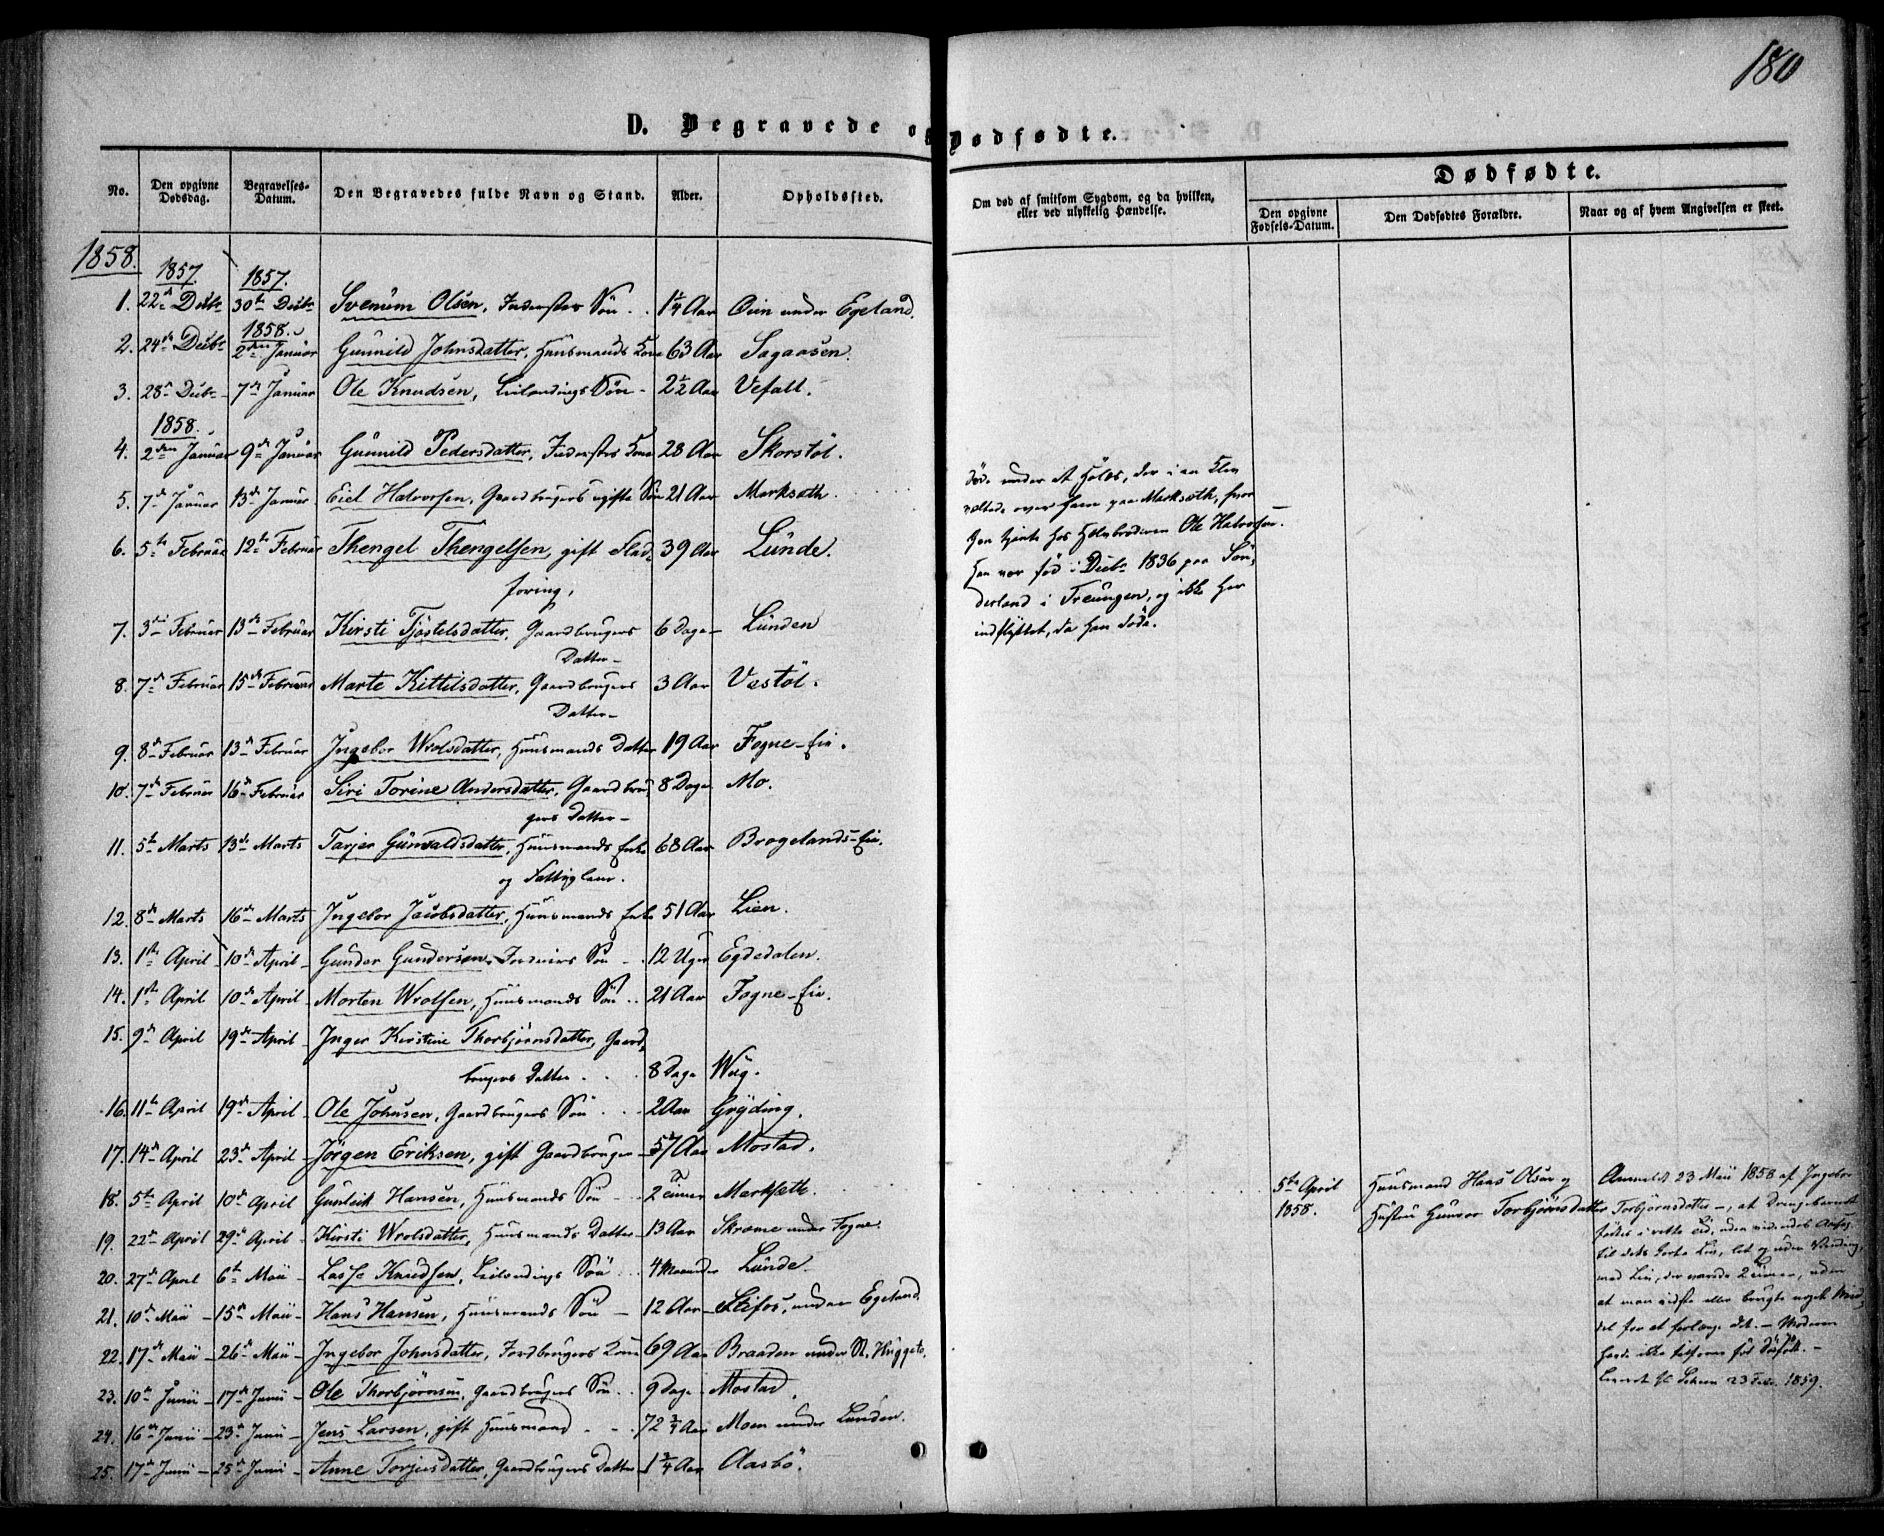 180
D. Begravede og Dødfødte.
No. Den opgivne Dødsdag. Begravelses-Datum. Den Begravedes fulde Navn og Stand. Alder. Opholdssted. Om død af smitsom Sygdom, og da hvilken, eller ved ulykkelig Hændelse. Dødfødte. Den opgivne Fødsels-Datum. Den Dødfødtes Forældre. Naar og af hvem Angivelsen er skeet.
1858.
1857. 1857.
1. 22de Decbr 30te Decbr Svenum Olsen, Inderstes Søn 1 1/4 Aar Oien under Egeland.
1858.
2. 24de Decbr 2den Januar Gunnild Johnsdatter, Huusmands Kone 63 Aar Sagaasen.
3. 28de Decbr 7de Januar Ole Knudsen, Leilændings Søn 2 1/2 Aar Vefall.
1858.
4. 2den Januar 9de Januar Gunnild Pedersdatter, Inderstes Kone 28 Aar Skorstøl.
5. 7de Januar 13de Januar Eiel Halvorsen, Gaardbrugers ugifte Søn 21 Aar Marksæth.
Døde under et Hølæs, der i en Klev
væltede over ham paa Marksæth, hvor
han tjente hos Halvbroderen Ole Halvorsen.
Han var fød i Decbr 1836 paa Søn-
derland i Treungen, og ikke her
indflyttet, da han døde.
6. 5te Februar 12te Februar Thengel Thengelsen, gift Flad-
føring, 39 Aar Lunde.
7. 3die Februar 13de Februar Kirsti Tjøstelsdatter, Gaardbrugers
Datter 6 Dage Lunden
8. 7de Februar 15de Februar Marte Kittilsdatter, Gaardbrugers
Datter 3 Aar Vestøl.
9. 8de Februar 13de Februar Ingebor Wrolsdatter, Huusmands Datter 19 Aar Fogne-Eie.
10. 7de Februar 16de Februar Siri Torine Andersdatter, Gaardbru-
gers Datter 8 Dage Mo.
11. 5te Marts 13de Marts Tarjer Gunvaldsdatter, Huusmands Enke
og Fattiglem. 68 Aar Brogelands-Eie.
12. 8de Marts 16de Marts Ingebor Jacobsdatter, Huusmands Enke 51 Aar Lien.
13. 1ste April 10de April Gunder Gundersen, Søn 12 Uger Egdedalen.
14. 1ste April 10de April Morten Wrolsen, Huusmands Søn 21 Aar Fogne-Eie.
15. 9de April 19de April Inger Kirstine Thorbjørnsdatter, Gaard-
brugers Datter 8 Dage Weg.
16. 11te April 19de April Ole Johnsen, Gaardbrugers Søn 2 Aar Gryding.
17. 14de April 23de April Jørgen Eriksen, gift Gaardbruger 57 Aar Mostad.
18. 5te April 10de April Gunleik Hansen, Huusmands Søn 2 Timer Marksæth.
5te April 1858. Huusmand Hans Olsen og
Hustru Gunvor Torbjørnsdatter
Anmeldt 23 Mai 1858 af Ingebor
Torbjørnsdatter, at Drengebarnet
fødtes i rette tid, uden
til dets korte Liv, let og uden
med Liv, der varede 2 Timer, uden
at man vidste eller brugte noget Mid-
del for at forlænge det. Moderen
havde ikke
23 Febr. 1859.
19. 22de April 29de April Kirsti Wrolsdatter, Huusmands Datter 13 Aar Skræme under Fogne.
20. 27de April 6te Maii Lasse Knudsen, Leilændings Søn 4 Maaneder Lunde.
21. 10de Maii 15de Maii Hans Hansen, Huusmands Søn 12 Aar Stifos, under Egeland.
22. 17de Maii 26de Maii Ingebor Johnsdatter, Jordbrugers Kone 69 Aar Braaden under
23. 10de Junii 17de Junii Ole Thorbjørnsen, Gaardbrugers Søn 9 Dage Mostad.
24. 16de Junii 23de Junii Jens Larsen, gift Huusmand 72 3/4 Aar Moen under Lunden.
25. 17de Junii 25de Junii Anne Torjusdatter, Gaardbrugers Datter 1 3/4 Aar Aasbø.